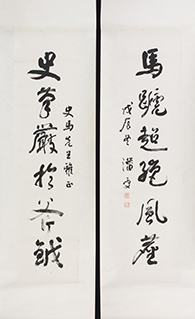 馬蹄超絕風塵
戊辰冬 潘受
史馬先生雅正
史筆嚴於斧鉞